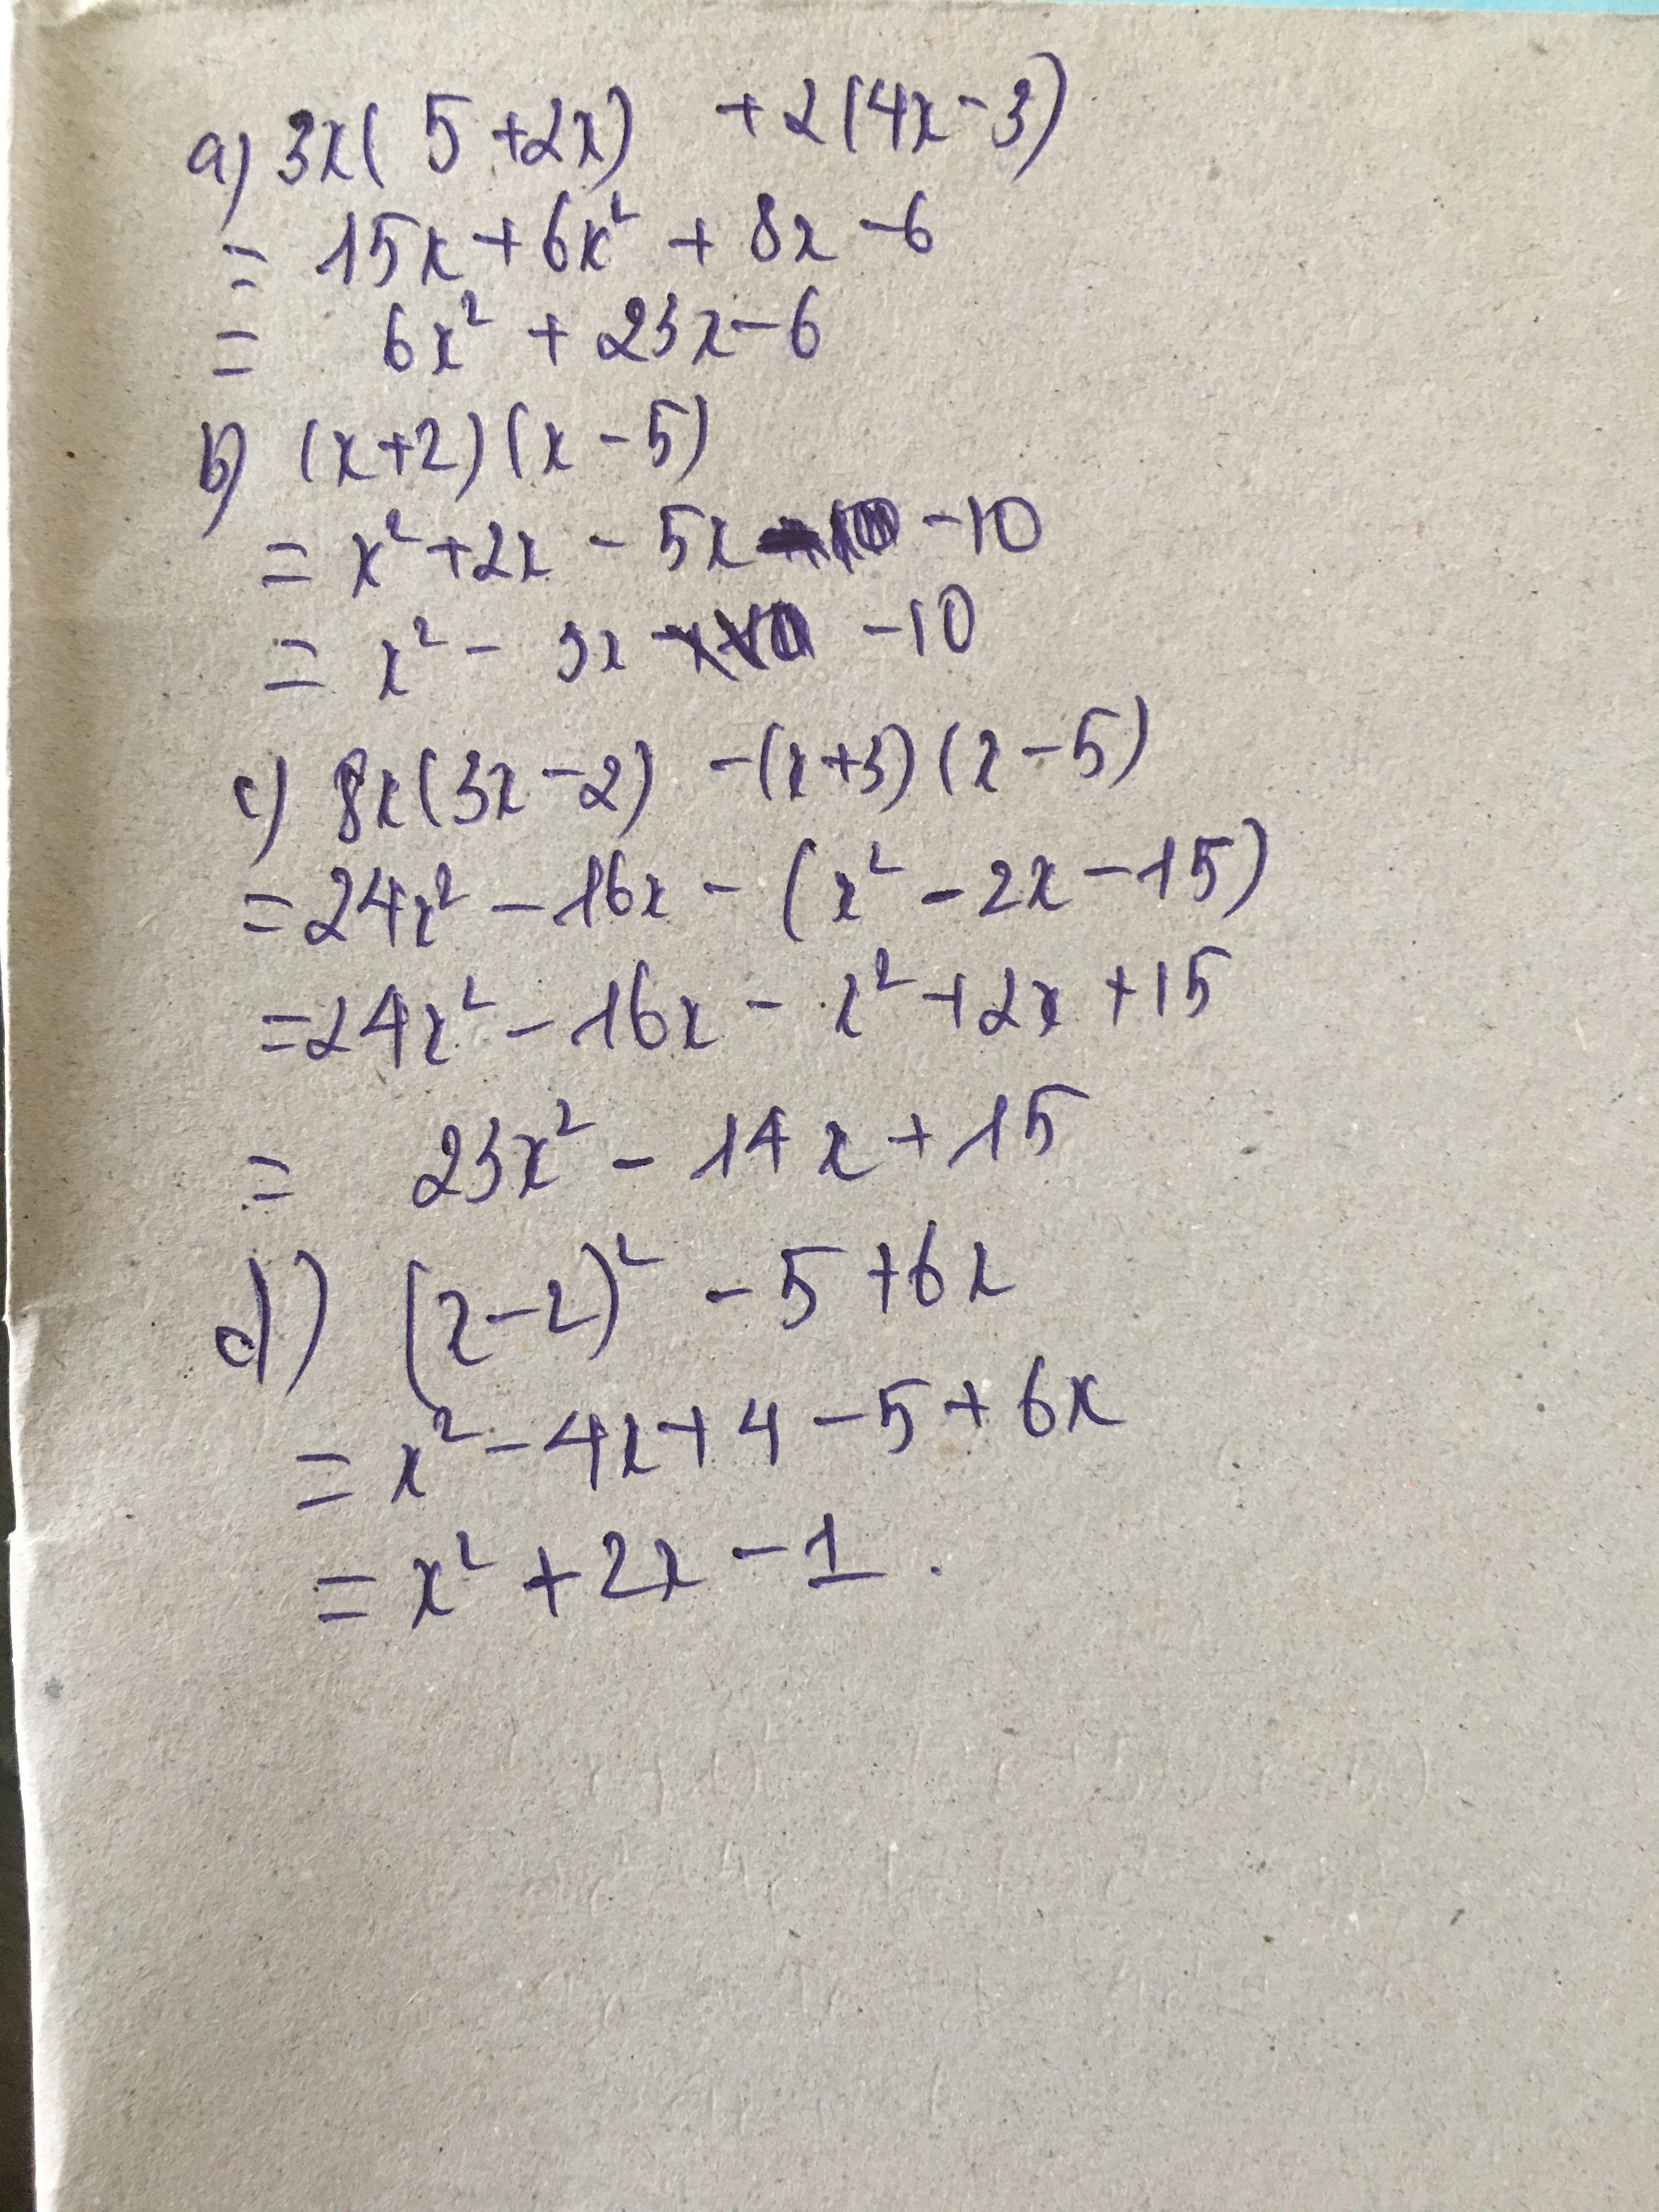 a) 3x(5+2x) +2(4x-3)
= 15x+6x² + 8x -6
= 6x² + 23x-6
b) (x+2)(x-5)
= x²+2x - 5x -10
= x² - 3x -10
c) 8x(3x-2) -(x+3)(x-5)
=24x² -16x - (x² -2x -15)
=24x² -16x - x² +2x +15
= 23x² - 14x +15
d) (x-2)² -5 +6x
= x² -4x+4 -5+6x
= x² +2x -1.